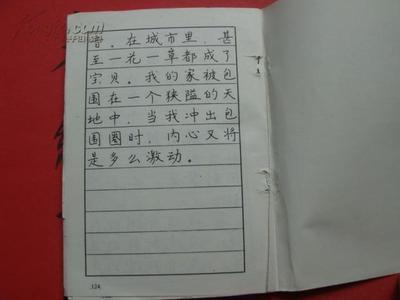 昔。在城市里,甚
至一花一草都成了
宝贝。我的家被包
围在一个狭隘的天
地中,当我冲出包
围圈时,内心又将
是多么激动。
124